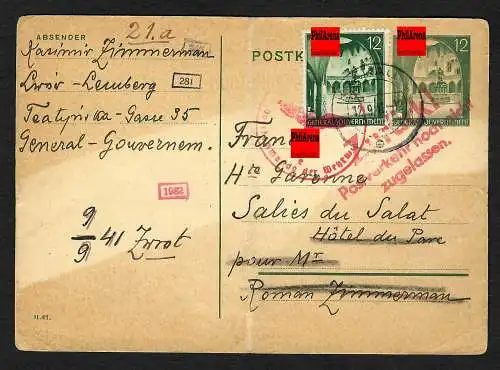 21.a
ABSENDER
Kasimir Zimmerman
Lwów-Lemberg
281
Teatyńska-Gasse 35
General-Gouvernem.
1982
9/9 41 Zwrot
II.41.
POSTK
PhilArena
12
GENERALGOUVERNEMENT
PhilArena
12
GENERALGOUVERNEMENT
PhilArena
Postverkehr noch nicht
zugelassen.
Hte Garonne
Salies du Salat
Hôtel du Parc
pour Mr
Roman Zimmerman